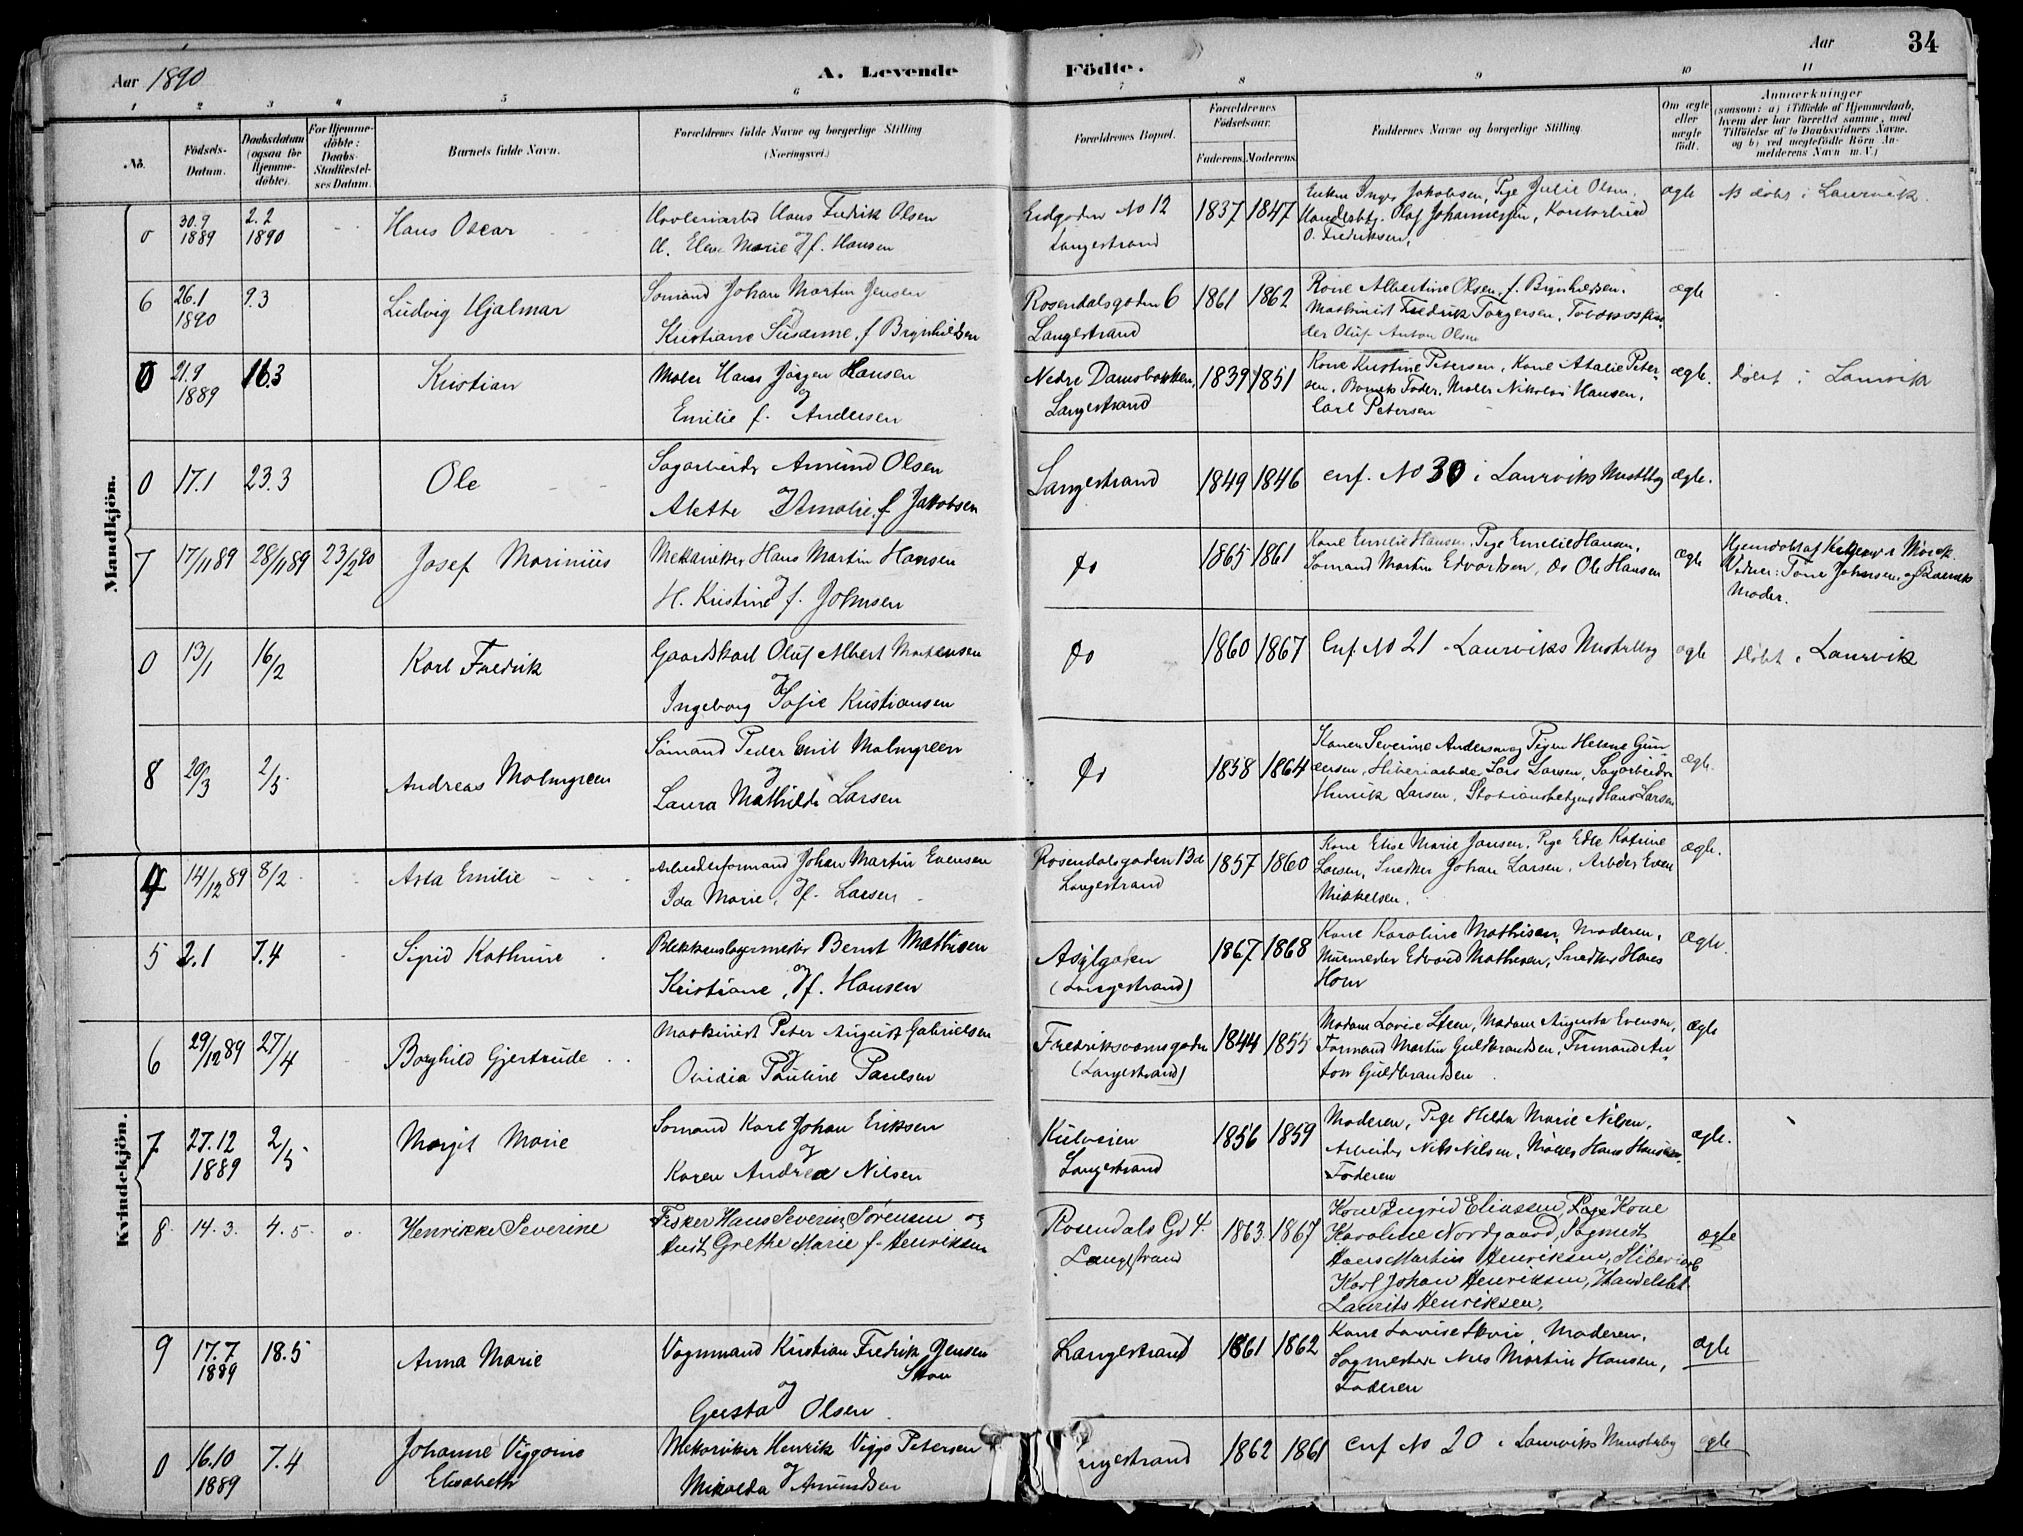 Aar 1890
A. Levende
Födte.
Aar
34
1 2 3 4 5 6 7 8 9 10 11
No.
Födsels-Datum.
Daabsdatum (ogsaa for Hjemme-döbte).
For Hjemme-döbte: Daabs-Stadfæstel-ses Datum.
Barnets fulde Navn.
Forældrenes fulde Navne og borgerlige Stilling (Næringsvei.)
Forældrenes Bopæl.
Forældrenes Födselsaar.
Faderens. Moderens.
Faddernes Navne og borgerlige Stilling.
Om ægte eller uægte födt.
Anmærkninger
(saasom: a) i Tilfælde af Hjemmedaab, hvem der har forrettet samme, med Tilföielse af to Daabsvidners Navne. og b) ved uægtefödte Börn An-melderens Navn m. V.)
Mandkjön.
0 30.9 1889 2.2 1890 Hans Oscar
Hans Fredrik Olsen
Marie f. Hansen
No 12 Langestrand
1837 1847
Enken Inger Jakobsen, Pige Julie Olsen,
Olaf Johannessen,
O. Fredriksen,
ægte
döbt i Laurvik.
6 26.1 1890 9.3 Ludvig Hjalmar
Sömand Johan Martin Jensen
og
Kristiane Susanne f. Brynhildsen
Rosendalsgaden 6 Langestrand
1861 1862
Kone Albertine Olsen, f. Brynhildsen,
Maskinist Fredrik Torgersen, Tobaksspin-
der Oluf Anton Olsen
ægte
0 21.9 1889 16.3 Kristian
Maler Hans Jörgen Hansen
og
Emilie f. Andersen
Nedre Damsbakken, Langestrand
1839 1851
Kone Kristine Petersen, Kone Atalie Peter-
sen, Barnets Fader, Maler Nikolai Hansen,
Carl Petersen
ægte.
döbt i Laurvik
0 17.1 23.3 Ole
Sagarbeider Amund Olsen
og
Alette Amalie f. Jakobsen
Langestrand
1849 1846
cnf. No 30 i Laurviks Mbog
ægte.
7 17/11 89 28/11 89 23/2 90 Josef Marinius
Mekaniker Hans Martin Hansen
og
H. Kristine f. Johnsen
Do
1865 1861
Kone Emelie Hansen, Pige Emelie Hansen,
Sömand Martin Edvardsen, do Ole Hansen
ægte
Hjemdöbt af
Vidner: Tone Johnsen, og Barnets
Moder.
0 13/1 16/2 Karl Fredrik
Gaardskarl Oluf Albert Mortensen
og
Ingeborg Sofie Kristiansen
Do
1860 1867
Cnf. No 21 Laurviks
ægte
döbt i Laurvik
8 20/3 2/5 Andreas Malmgreen
Sömand Peder Emil Malmgreen
og
Laura Mathilde Larsen
Do
1858 1864
Konen Severine Andersen, Pigen Helene Gun-
dersen, Lars Larsen, Sagarbeider
Henrik Larsen, Hans Larsen
ægte.
Kvindekjön.
4 14/12 89 8/2 Asta Emilie
Arbeiderformand Johan Martin Evensen
og
Ida Marie, f. Larsen
Rosendalsgaden 13a Langestrand
1857 1860
Kone Elise Marie Jansen, Pige Edle Katrine
Larsen, Snedker Johan Larsen, Arbeder Even
Mikkelsen.
ægte.
5 2.1 7.4 Sigrid Kathrine
Blikkenslagermester Bernt Mathisen
og
Kristiane, f. Hansen
Asylgaden (Langestrand)
1867 1868
Kone Karoline Mathisen, Moderen,
Murmester Edvard Mathisen, Snedker Hans
Ægte.
6 29/12 89 27/4 Borghild Gjertrude
Maskinist Peter August Gabrielsen
og
Ovidia Pauline Paulsen
Fredriksværnsgaden (Langestrand)
1844 1855
Madam Lovise Steen, Madam Augusta Evensen,
Formand Martin Guldbrandsen, Formand An-
ton Guldbrandsen
ægte
7 27.12 1889 2/5 Margit Marie
Sömand Karl Johan Eriksen
og
Karen Andrea Nilsen
Kulveien Langestrand
1856 1859
Moderen, Pige Hilda Marie Nilsen,
Arbeider Nils Nilsen, Möller Hans Hansen,
Faderen
ægte.
8. 14.3. 4.5. Henrikke Severine
Fisker Hans Severin Sörensen og
Hust. Grethe Marie f. Henriksen
Rosendals Gd 4. Langestrand
1863. 1867
Kone Ingrid Eliassen, Kone
Karoline Nordgaard, Sagmest.
Hans Martin Henriksen, Sliberiarb
Karl Johan Henriksen, Handelsbet.
Laurits Henriksen.
ægte
9 17.7 1889 18.5 Anna Marie
Vognmand Kristian Fredrik Jensen
Skou
og
Gusta Olsen
Langestrand
1861 1862
Kone Lovise Skou, Moderen,
Sagmester Nils Martin Hansen,
Faderen
ægte
0 16.10 1889 7.4 Johanne Viggoine Elisabeth
Mekaniker Henrik Viggo Petersen
og
Mikalda Amundsen
Langestrand
1862 1861
cnf No 20 i Laurviks
ægte